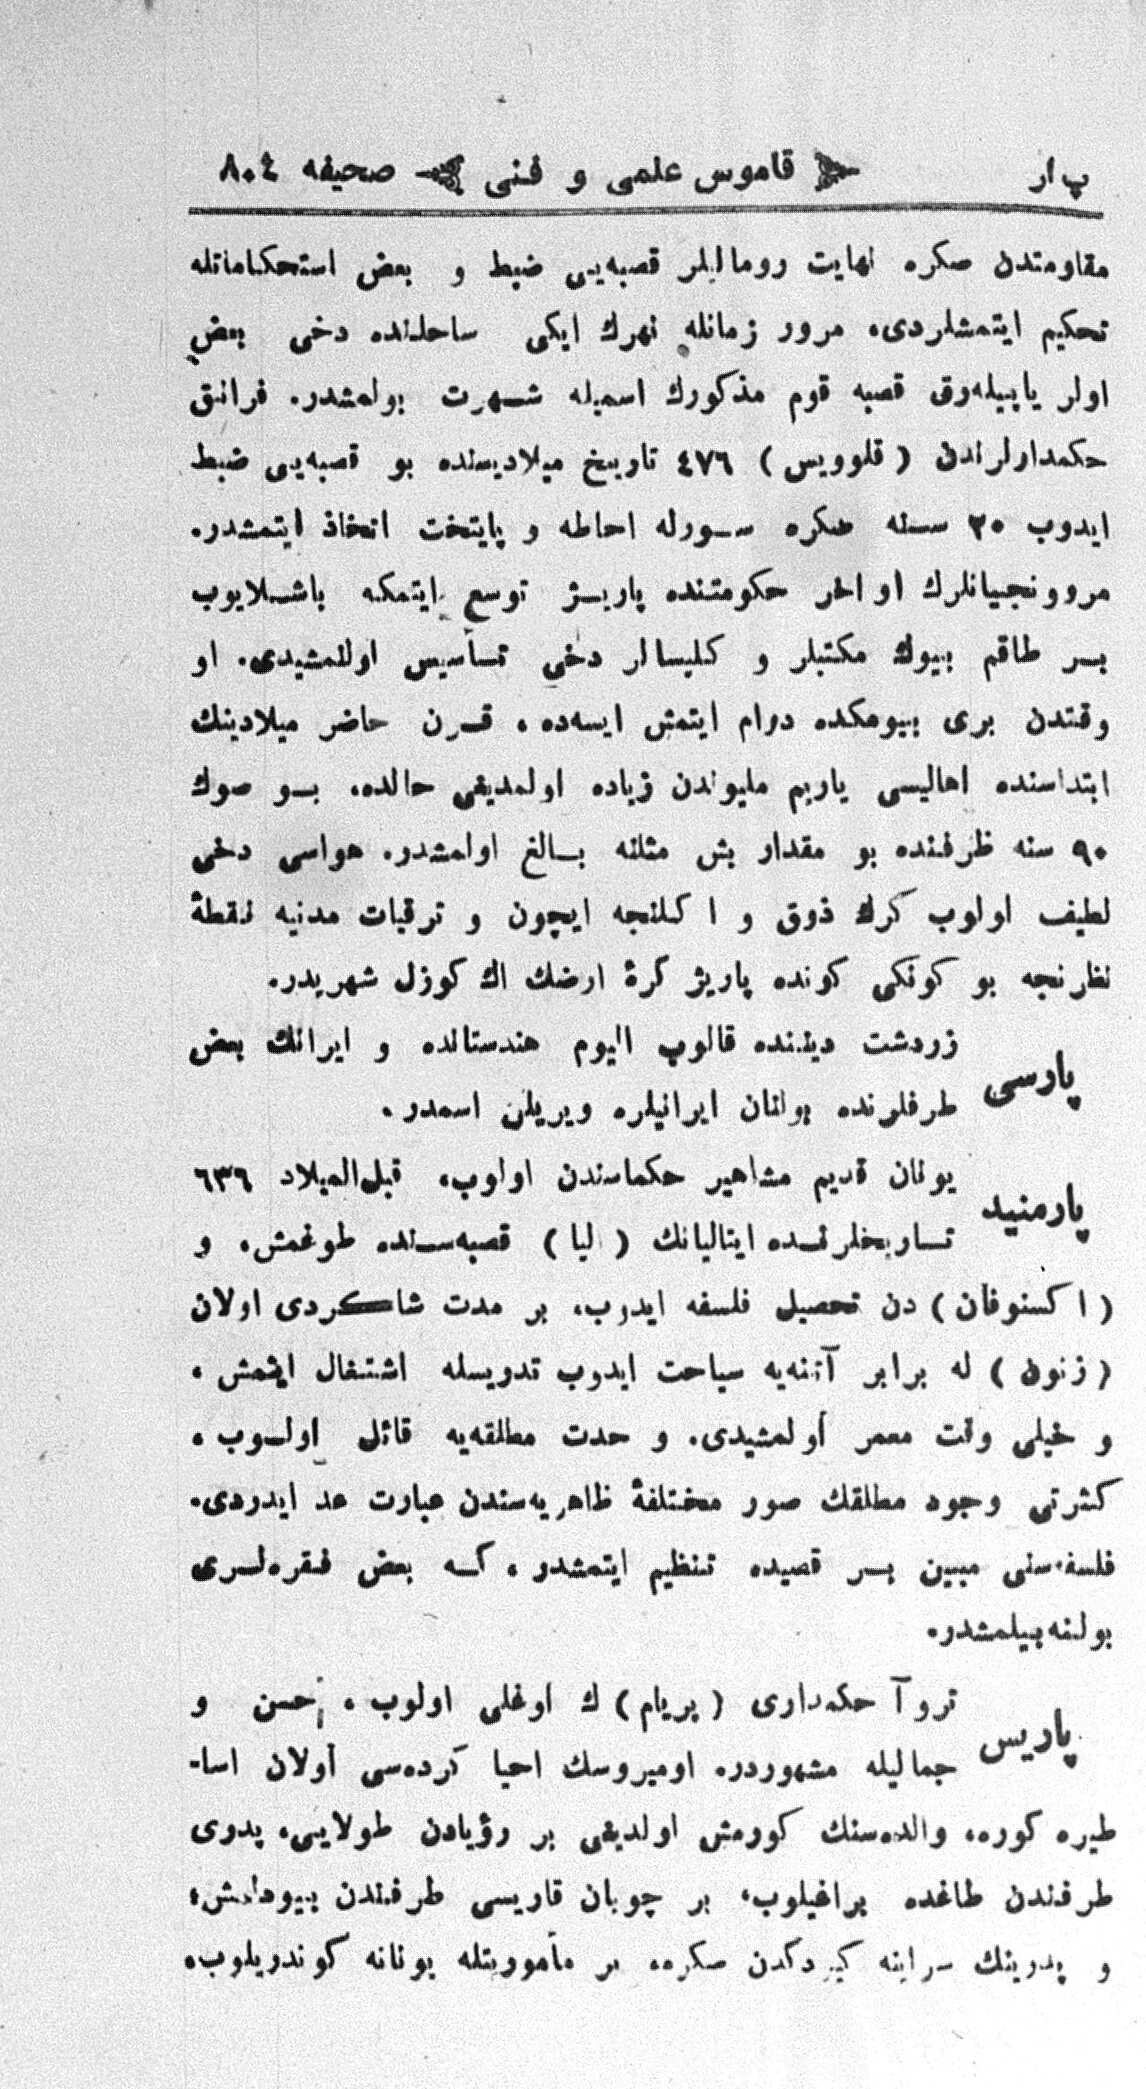 پ ار قاموس علمی و فنی صحیفه ٨٠٤
مقاومتدن صکره نهایت رومالیلر قصبه‌یی ضبط و بعض استحکاماتله
تحکیم ایتمشلردی، مرور زمانله نهرك ایکی ساحلنده دخی بعض
اولر یاپیله‌رق قصبه قوم مذکورك اسمیله شهرت بولمشدر. فرانق
حکمدارلرندن (قلوویس) ٤٧٦ تاریخ میلادیسنده بو قصبه‌یی ضبط
ایدوب ٣٠ سنه صکره سورله احاطه و پایتخت اتخاذ ایتمشدر.
مروونجیانلرك اواخر حکومتنده پاریژ توسع ایتمکه باشلایوب
بر طاقم بیوك مکتبلر و کلیسالر دخی تأسیس اولنمشیدی. او
وقتدن بری بیومکده دوام ایتمش ایسه‌ده، قرن حاضر میلادینك
ابتداسنده اهالیسی یاریم ملیوندن زیاده اولمدیغی حالده، بو صوك
٩٠ سنه ظرفنده بو مقدار بش مثلنه بالغ اولمشدر. هواسی دخی
لطیف اولوب کرك ذوق و اکلنجه ایچون و ترقیات مدنیه نقطهٔ
نظرنجه بو کونکی کونده پاریژ کرهٔ ارضك اك کوزل شهریدر.
پارسی زردشت دیننده قالوب الیوم هندستانده و ایرانك بعض
طرفلرنده بولنان ایرانیلره ویریلن اسمدر.
پارمنید یونان قدیم مشاهیر حکماسندن اولوب، قبل‌المیلاد ٦٣٦
تاریخلرنده ایتالیانك (الیا) قصبه‌سنده طوغمش، و
(اکسنوفان) دن تحصیل فلسفه ایدوب، بر مدت شاکردی اولان
(زنون) له برابر آتنه‌یه سیاحت ایدوب تدریسله اشتغال ایتمش،
و خیلی وقت معمر اولمشیدی. وحدت مطلقه‌یه قائل اولوب،
کثرتی وجود مطلقك صور مختلفهٔ ظاهریه‌سندن عبارت عد ایدردی.
فلسفه‌سنی مبین بر قصیده تنظیم ایتمشدر، که بعض فقره‌لری
بولنه‌بیلمشدر.
پاریس تروآ حکمداری (پریام) ك اوغلی اولوب، حسن و
جمالیله مشهوردر. اومیروسك احیا کرده‌سی اولان اسا-
طیره کوره، والده‌سنك کورمش اولدیغی بر رؤیادن طولایی، پدری
طرفندن طاغده براغیلوب، بر چوبان قاریسی طرفندن بیودلمش،
و پدرینك سراینه کیردکدن صکره، بر مأموریتله یونانه کوندریلوب،